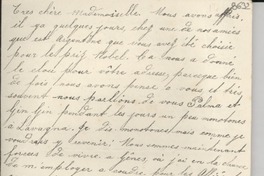 Très chère Mademoiselle. Nous avons appris,
il ya quelques jours, chez une de nos amies
qui est argentine que vous avez été choisie
pour le prix Nobel. Ca nous a donné
le clou pour votre adresse, parceque bien
de fois nous avons pensé a vous et très
souvent nous parlions de vous Palma et
Gin Gin pendant les jours un peu monotones
a Lavagna. Je dis monotones mais comme je
voudrais y revenir! Nous sommes maintenant
forcées de vivre a Gênes, où j'ai eu la chance
de m'employer